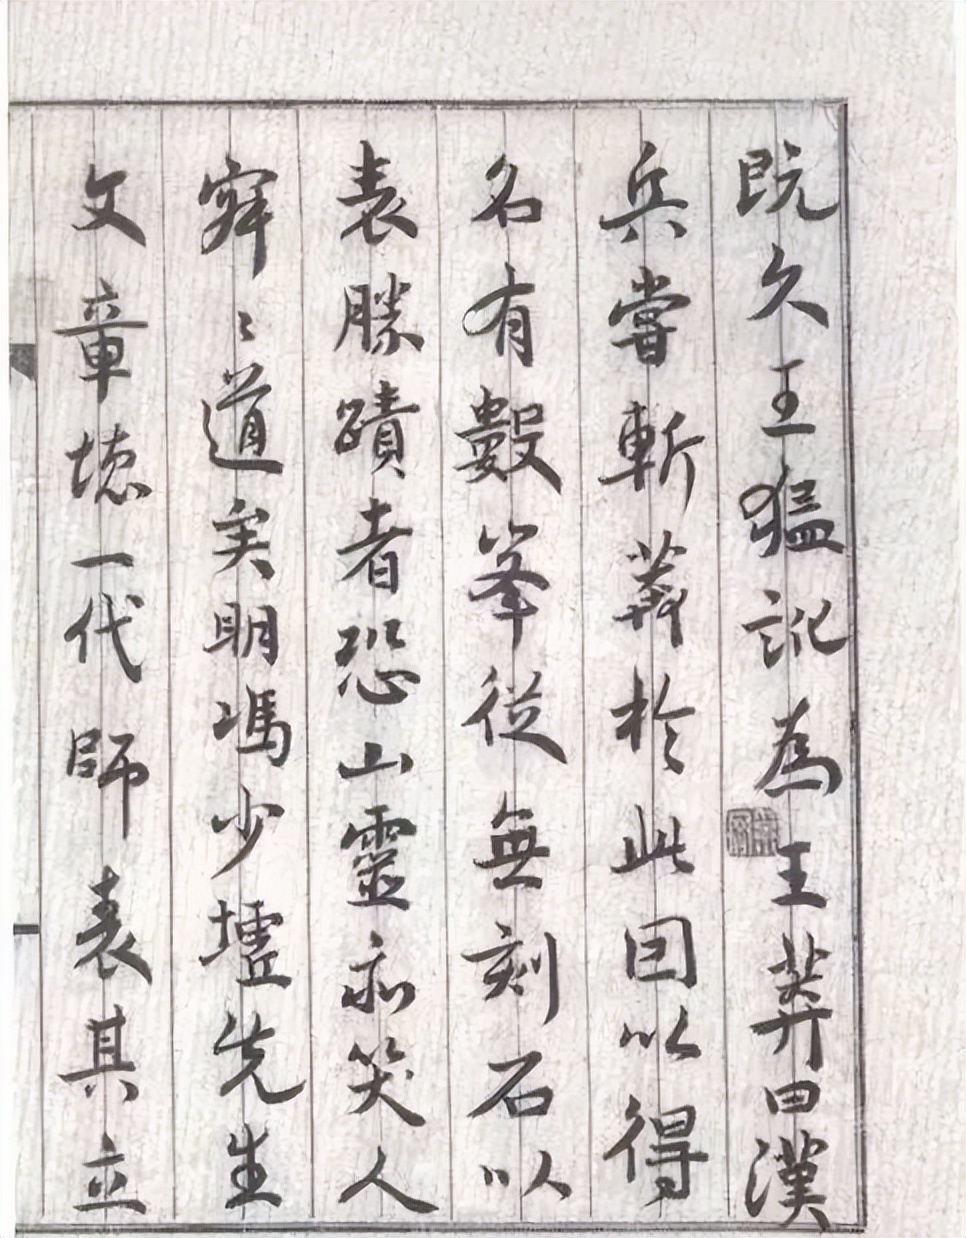 既久王猛訛為王莽曰漢
兵嘗斬莽於此因以得
名有數峯從無刻石以
表勝蹟者恐山靈亦笑人
〻道矣明馮少墟先生
文章一代師表其立